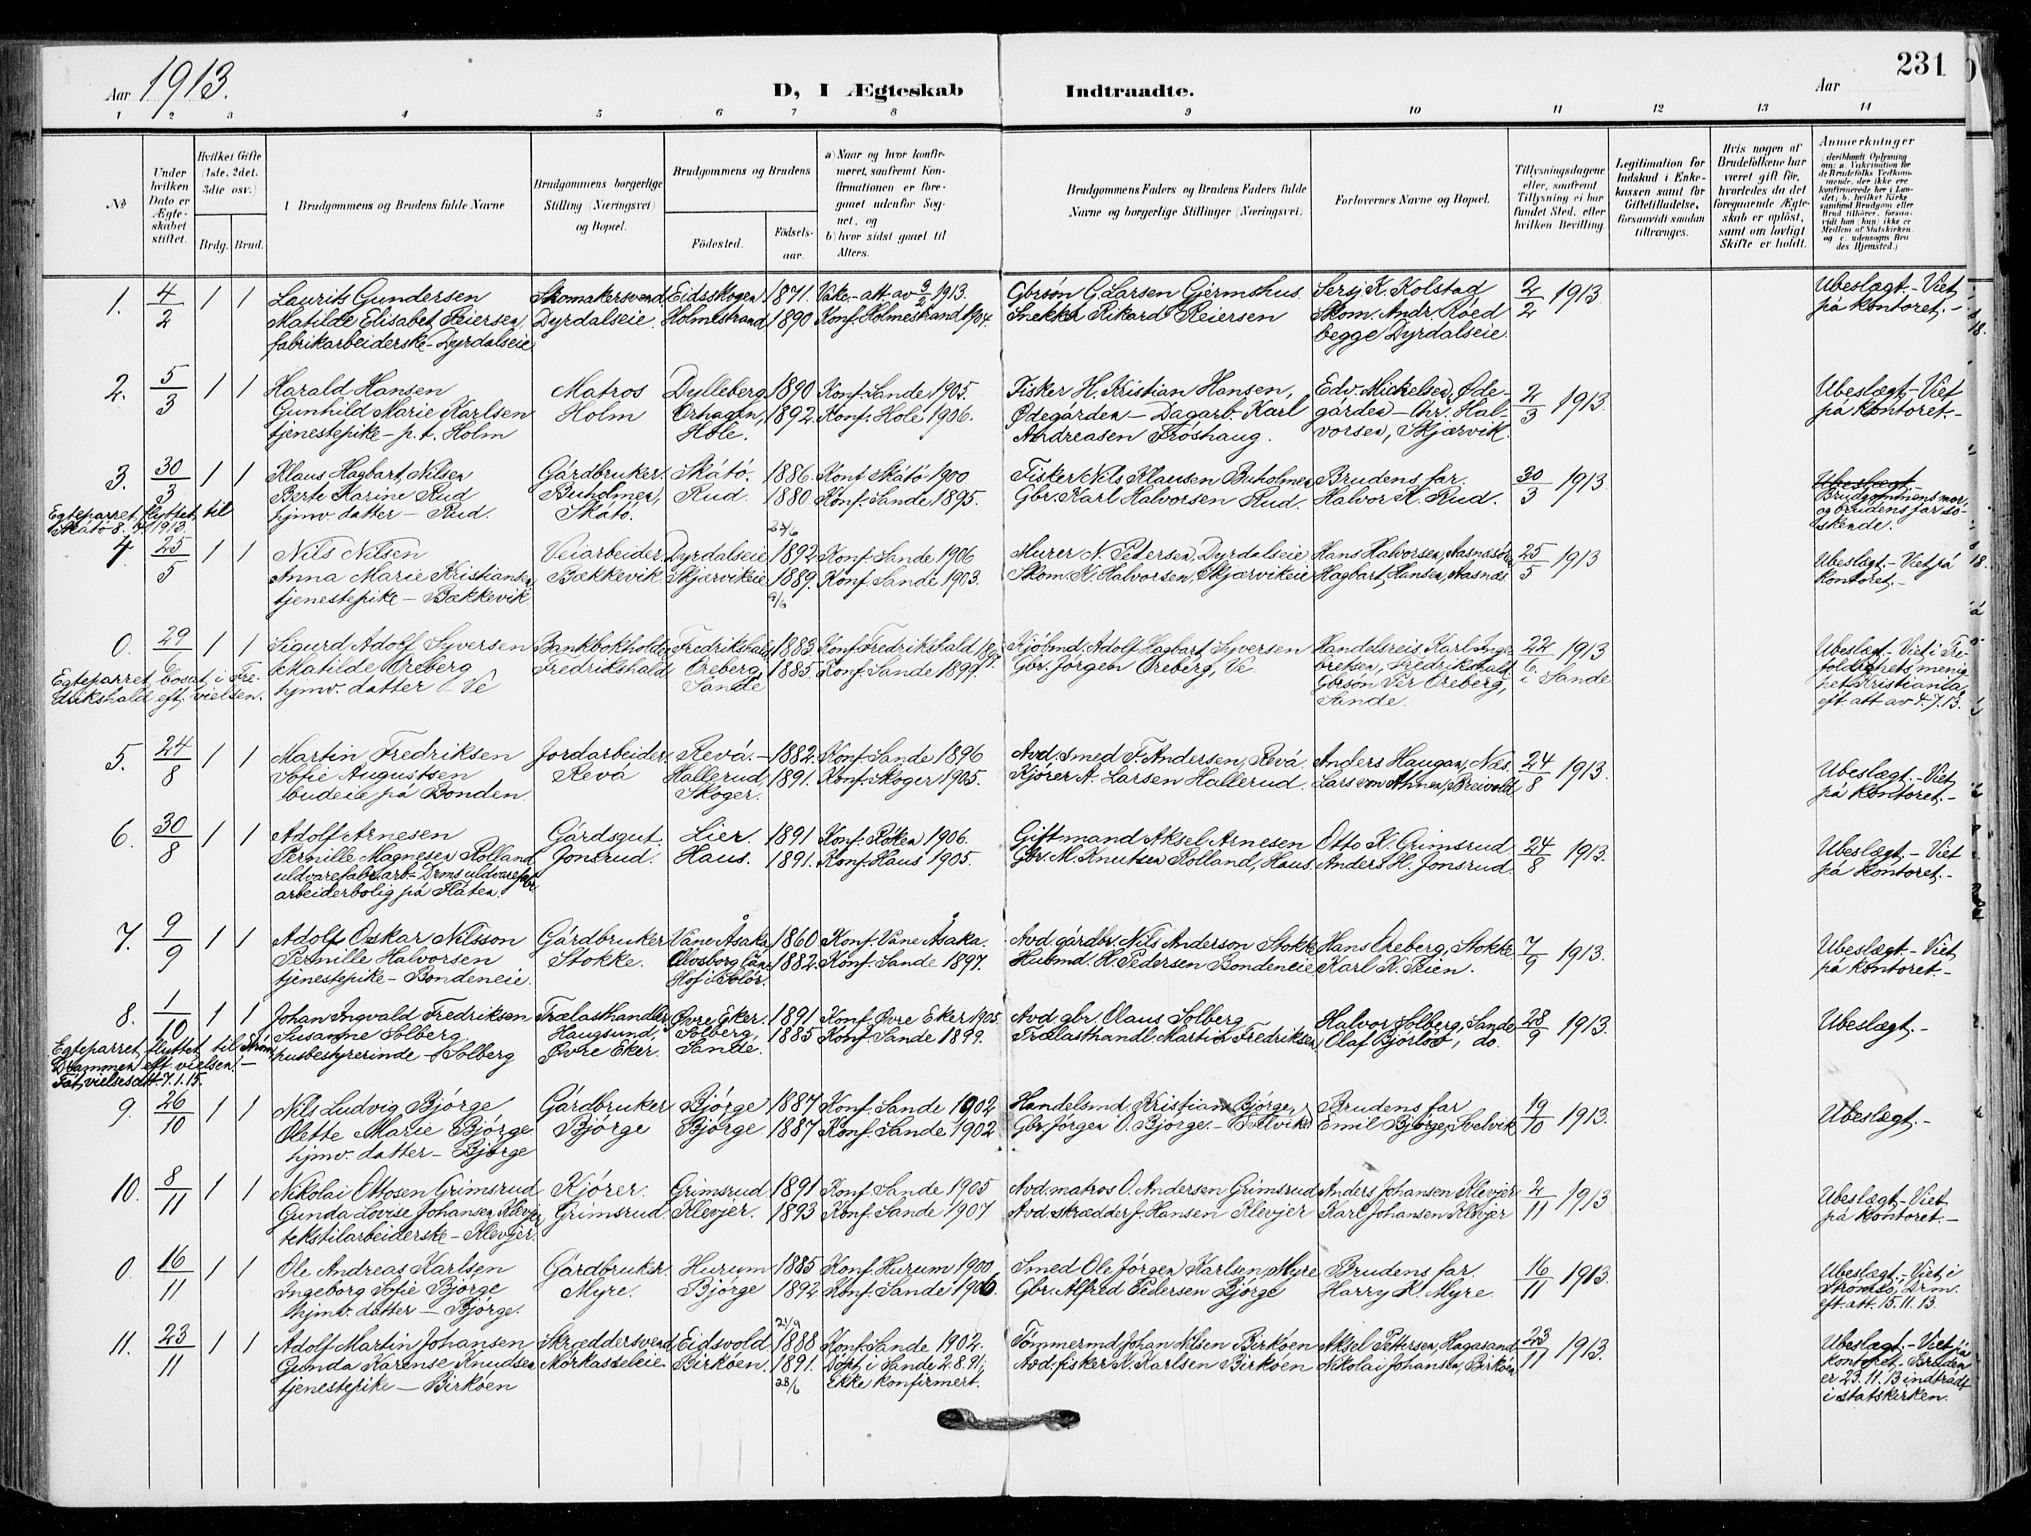 231
Aar 1913. D, I Ægteskab Indtraadte. Aar
1 2 3 4 5 6 7 8 9 10 11 12 13 14
No
Under hvilken Dato er Ægteskabet stiftet.
Hvilket Gifte (1ste, 2det, 3die osv.)
Brdg. Brud.
Brudgommens og Brudens fulde Navne
Brudgommens borgerlige Stilling (Næringsvei) og Bopæl.
Brudgommens og Brudens
Fødested. Fødselsaar.
a) Naar og hvor konfirmeret, saafremt Konfirmationen er foregaaet udenfor Sognet, og
b) hvor sidst gaaet til Alters.
Brudgommens Faders og Brudens Faders fulde Navne og borgerlige Stillinger (Næringsvei)
Forlovernes Navne og Bopæl.
Tillysningsdagene eller, saafremt Tillysning ei har fundet Sted, efter hvilken Bevilling.
Legitimation for Indskud i Enkekassen samt for Giftetilladelse, forsaavidt saadan tiltrænges.
Hvis nogen af Brudefolkene har været gift før, hvorledes da det foregaaende Ægteskab er opløst, samt om lovligt Skifte er holdt.
Anmærkninger
1. 4/2 1 1 Laurits Gundersen Skomakersvend Eidsskogen 1871. Vake.- att. av 3/2 1913. Gbrsøn G. Larsen Gjermshus. Sersj. K. Kolstad 2/2 1913. Ubeslægt.- Viet
Matilde Elisabet Reiersen, Dyrdalseie. Holmestrand 1890 Konf. Holmestrand 1904. Snekker Rikard Reiersen Skom. Andr. Røed på kontoret.-
fabrikarbeiderske - Dyrdalseie begge Dyrdalseie.
2. 5/3 1 1 Harald Hansen Matros Dylleberg 1890 Konf. Sande 1905. Fisker H. Kristian Hansen, Edv. Mickelsen, Øde- 2/3 1913. Ubeslægt.- Viet
Gunhild Marie Karlsen Holm Ørhagen, 1892. Konf. Hole 1906. Ødegården - Dagarb. Karl gården - Chr. Hal- på kontoret.-
tjenestepike - p.t. Holm Hole. Andreasen Frøshaug. vorsen, Skjærvik.
3. 30/3 1 1 Klaus Hagbart Nilsen Gårdbruker. Skåtø. 1886. Konf. Skåtø 1900. Fisker Nils Klausen Buholmen Brudens far. 30/3 1913. Ubeslægt.-
Berte Karine Rud Buholmen, Rud. 1880 Konf. Sande 1895. Gbr. Karl Halvorsen Rud. Halvor K. Rud. Brudgommens mor
Egteparret flyttet til hjmv. datter - Rud. Skåtø. og brudens far sø-
Skåtø 8.4.1913. skende.
4. 25/5 1 1 Nils Nilsen Veiarbeider Dyrdalseie 1892 Konf. Sande 1906 Murer N. Petersen, Dyrdalseie Hans Halvorsen, Aasnesøre 25/5 1913 Ubeslægt.- Viet på
Anna Marie Kristiansen Bækkevik. Skjærvikeie 1889. Konf. Sande 1903. Skom. K. Halvorsen, Skjærvikeie Hagbart Hansen, Aasnæs kontoret.-
tjenestepike - Bækkevik.
0. 29/ 1 1 Sigurd Adolf Syversen Bankbokholder Fredrikshald 1883 Konf. Fredrikshald 1897. Kjøbmd. Adolf Hagbart Syversen Handelsreis. Karl Inge- 22/6 1913. Ubeslægt.- Viet i Tre-
Matilde Øreberg Fredrikshald. Øreberg, 1885. Konf. Sande 1899. Gbr. Jørgen Øreberg, Ve. bretsen, Fredrikshald i Sande foldighets menig-
Egteparret bosat i Fre- hjmv. datter - Ve Sande Gbrsøn Per Øreberg, het, Kristiania
drikshald eft. vielsen. Sande. eft. att. av 4.7.13.
5. 24/8 1 1 Martin Fredriksen Jordarbeider. Revå.- 1882. Konf. Sande 1896 Avd. smed F. Andersen, Revå Anders Haugan, Nes. 24/8 1913. Ubeslægt.- Viet
Sofie Augustsen Revå Hallerud, 1891. Konf. Skoger 1905. Kjører A. Larsen Hallerud. på kontoret.-
budeie på Bonden. Skoger.
6. 30/8 1 1 Adolf Arnesen Gårdsgut. Lier. 1891 Konf. Røken 1906. Gift mand Aksel Arnesen Otto K. Grimsrud 24/8 1913. Ubeslægt.- Viet
Pernille Magnesen Rolland Jonsrud. Haus. 1891. Konf. Haus 1905. Gbr. M. Knutsen Rolland, Haus Anders H. Jonsrud. på kontoret.-
uldvarefabr.arb.- Drms uldvarefabr.
arbeiderbolig på Flåten.
7. 9/9 1 1 Adolf Oskar Nilsson Gårdbruker Vane Åsaka 1860 Konf. Vane Åsaka. Avd. gårdbr. Nils Anderson Stokke Hans Øreberg, Stokke 7/9 1913. Ubeslægt.- Viet
Pernille Halvorsen Stokke. Elvsborg Län 1882. Konf. Sande 1897. Husmd. H. Pedersen Bondeneie Karl K. Teien. på kontoret.-
tjenestepike - Bondeneie. Hof i Solør.
8. 1/10 1 1 Johan Ingvald Fredriksen Trælasthandler Øvre Eker. 1891 Konf. Øvre Eker 1905. Avd. gbr. Olaus Solberg Halvor Solberg, Sande 28/9 1913. Ubeslægt.-
Susanne Solberg Haugsund, Solberg, 1885 Konf. Sande 1899. Trælasthandl. Martin Fredriksen Olaf Bjørløv, do.
Egteparret flyttet til Strøm husbestyrerinde - Solberg Øvre Eker. Sande.
Drammen eft. vielsen.-
Fåt vielsesatt. 7.1.15.
9. 26/10 1 1 Nils Ludvig Bjørge Gårdbruker Bjørge 1887 Konf. Sande 1902 Handelsmd. Kristian Bjørge, Brudens far 19/10 1913. Ubeslægt.-
Olette Marie Bjørge. Bjørge Bjørge 1887 Konf. Sande 1902 Gbr. Jørgen O. Bjørge.- Svelvik Emil Bjørge, Svelvik
hjmv. datter - Bjørge
10. 8/11 1 1 Nikolai Ottosen Grimsrud Kjører. Grimsrud 1891 Konf. Sande 1905 Avd. matros O. Andersen Grimsrud Anders Johansen Klevjer 2/11 1913. Ubeslægt.- Viet
Gunda Lovise Johansen Klevjer Grimsrud. Klevjer. 1893 Konf. Sande 1907 Avd. skrædder J. Hansen Klevjer Karl Johansen Klevjer på kontoret.-
tekstilarbeiderske - Klevjer.
0. 16/11 1 1 Ole Andreas Karlsen Gårdbruker. Hurum 1885 Konf. Hurum 1900. Smed Ole Jørgen Karlsen, Myre Brudens far. 16/11 1913. Ubeslægt.- Viet i
Ingeborg Sofie Bjørge Myre. Bjørge 1892 Konf. Sande 1906. Gbr. Alfred Pedersen Bjørge Harry K. Myre. Strømsø, Drm.
hjmv. datter - Bjørge. eft. att. 15.11.13.
11. 23/11 1 1 Adolf Martin Johansen Skræddersvend Eidsvold 1888 Konf. Sande 1902. Tømmermd. Johan Nilsen Birkøen Aksel Pettersen, Hagasand 23/11 1913. Ubeslægt.- Viet på
Gunda Karense Knudsen Mørkasseleie. Birkøen. 1891. Døpt i Sande 2.8.91, Avd. fisker K. Karlsen Birkøen Nikolai Johansen, Birkøen kontoret.- Bruden
tjenestepike - Birkøen 28/6 ikke konfirmert. er 23.11.13 indtrådt
i statskirken.